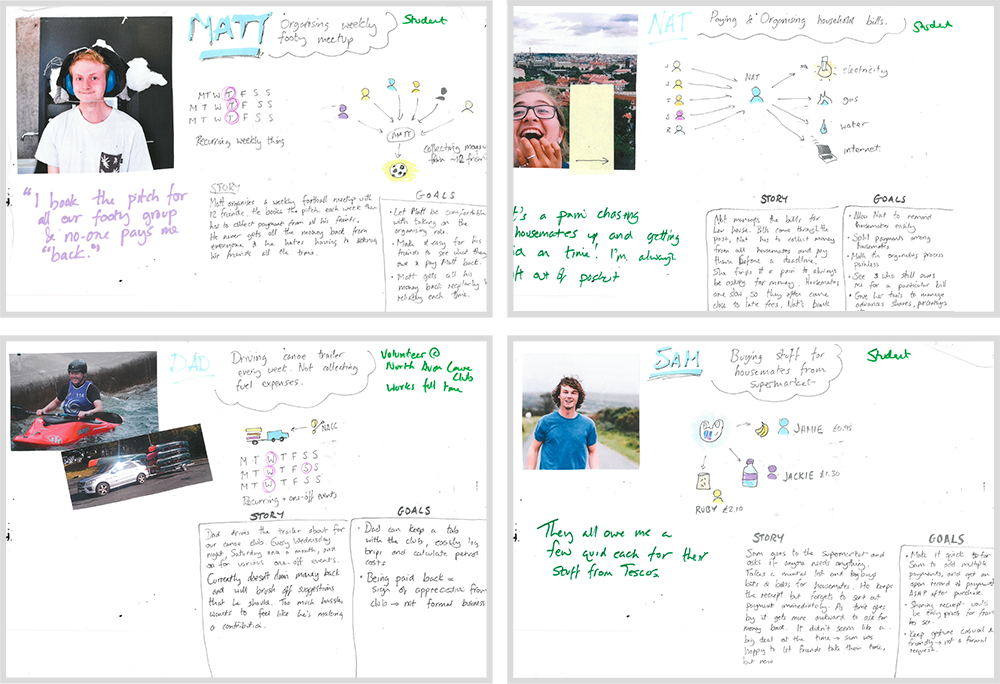 MATT
Organising weekly
footy meetup
Student
M T W T F S S
M T W T F S S
M T W T F S S
Recurring weekly thing
MATT
collecting money
from ~12 friends
"I book the pitch for
all our footy group
& no-one pays me
"back."
STORY
Matt organises a weekly football meetup with
12 friends. He books the pitch each week then
has to collect payment from all his friends.
He never gets all the money back from
everyone & he hates having to
his friends all the time.
GOALS
• Let Matt be comfortable
with taking on the
organising role.
• Make it easy for his
friends to see what they
owe & pay Matt back.
• Matt gets all his
money back regularly &
reliably each time.
NAT
Paying & Organising household bills.
Student
NAT
electricity
gas
water
internet
t's a pain chasing
housemates up and getting
on time. I'm always
ft out of pocket
STORY
Nat manages the bills for
her house. Bills come through the
post, Nat has to collect money
from all housemates and pay
them before a deadline.
She finds it a pain to always
be asking for money. Housemates
are slow, so they often come
close to late fees. Nat's bank
GOALS
• Allow Nat to remind
housemates easily
• Split payments among
housemates
• Make the organisers process
painless
• See who still owes
me for a particular bill
• Give her tools to manage
advances, shares, percentages
DAD
Driving canoe trailer
every week. Not collecting
fuel expenses.
Volunteer @
North Avon Canoe
Club
Works full time
NACC
M T W T F S S
M T W T F S S
M T W T F S S
Recurring + one-off events
STORY
Dad drives the trailer about for
our canoe club. Every Wednesday
night, Saturday once a month, and
for various one-off events.
Currently doesn't claim money back
and will brush off suggestions
that he should. Too much hassle,
wants to feel like he's making
a contribution.
GOALS
• Dad can keep a tab
with the club, easily log
trips and calculate petrol
costs
• Being paid back =
sign of appreciation from
club → not formal business
SAM
Buying stuff for
housemates from
supermarket
Student
JAMIE £0.95
JACKIE £1.30
RUBY £2.10
They all owe me a
few quid each for their
stuff from Tescos.
STORY
Sam goes to the supermarket and
asks if anyone needs anything.
Takes a mental list and buys
bits & bobs for housemates. He keeps
the receipt but forgets to sort out
payment immediately. As time goes
by it gets more awkward to ask for
money back. It didn't seem like a
big deal at the time → Sam was
happy to let friends take their time,
but now
GOALS
• Make it quick to for
Sam to add multiple
payments, and get an
open record of payments
ASAP after purchase.
• Sharing receipt could
be entry point for friends
to see.
• Keep gesture casual &
friendly → not a formal
request.